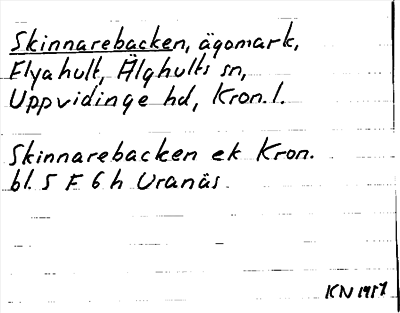 Skinnarebacken, ägomark,
Flyahult, Älghults sn,
Uppvidinge hd, Kron. l.
Skinnarebacken ek Kron.
bl. 5 F 6 h Uranäs
KN